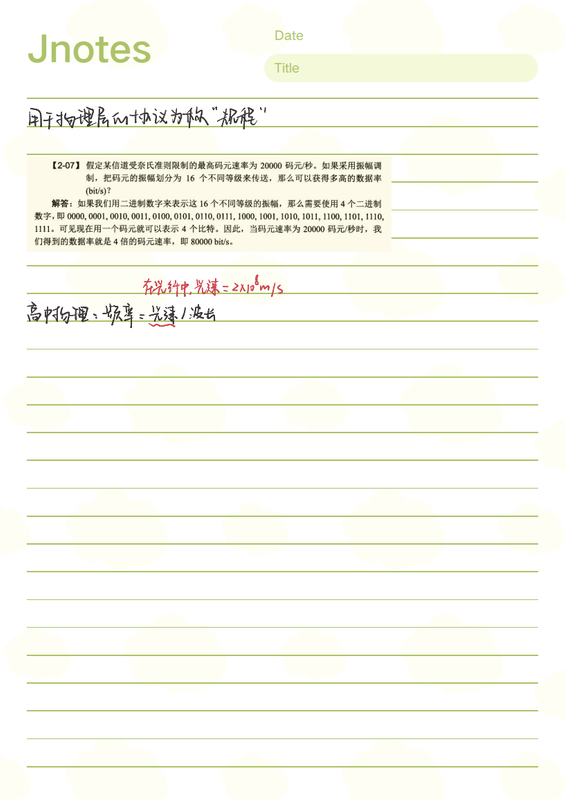 Jnotes
Date
Title
用于物理层的协议为称“规程”
【2-07】 假定某信道受奈氏准则限制的最高码元速率为 20000 码元/秒。如果采用振幅调
制，把码元的振幅划分为 16 个不同等级来传送，那么可以获得多高的数据率
(bit/s)?
解答：如果我们用二进制数字来表示这 16 个不同等级的振幅，那么需要使用 4 个二进制
数字，即 0000, 0001, 0010, 0011, 0100, 0101, 0110, 0111, 1000, 1001, 1010, 1011, 1100, 1101, 1110,
1111。可见现在用一个码元就可以表示 4 个比特。因此，当码元速率为 20000 码元/秒时，我
们得到的数据率就是 4 倍的码元速率，即 80000 bit/s。
在光纤中，光速=2×10⁸m/s
高中物理：频率=光速/波长